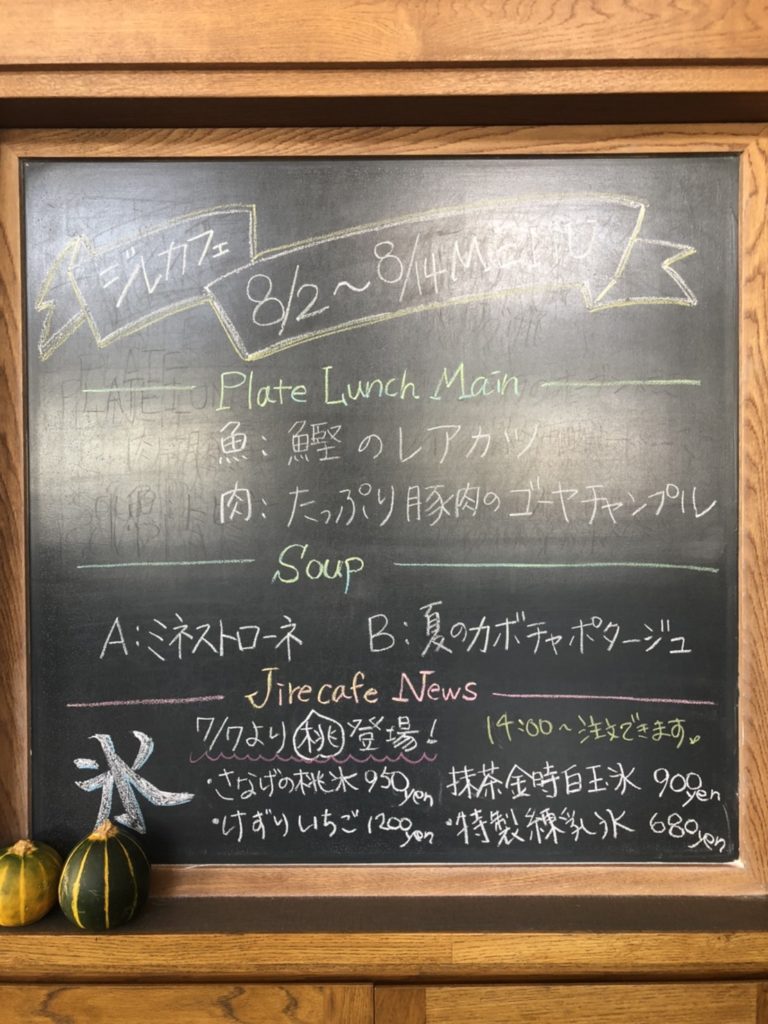 ジルカフェ
8/2〜8/14 MENU
Plate Lunch Main
魚：鰹のレアカツ
肉：たっぷり豚肉のゴーヤチャンプル
Soup
A：ミネストローネ B：夏のカボチャポタージュ
Jirecafe News
氷
7/7より桃登場！ 14:00〜注文できます。
・さなげの桃氷 950yen 抹茶金時白玉氷 900yen
・けずりいちご 1200yen ・特製練乳氷 680yen